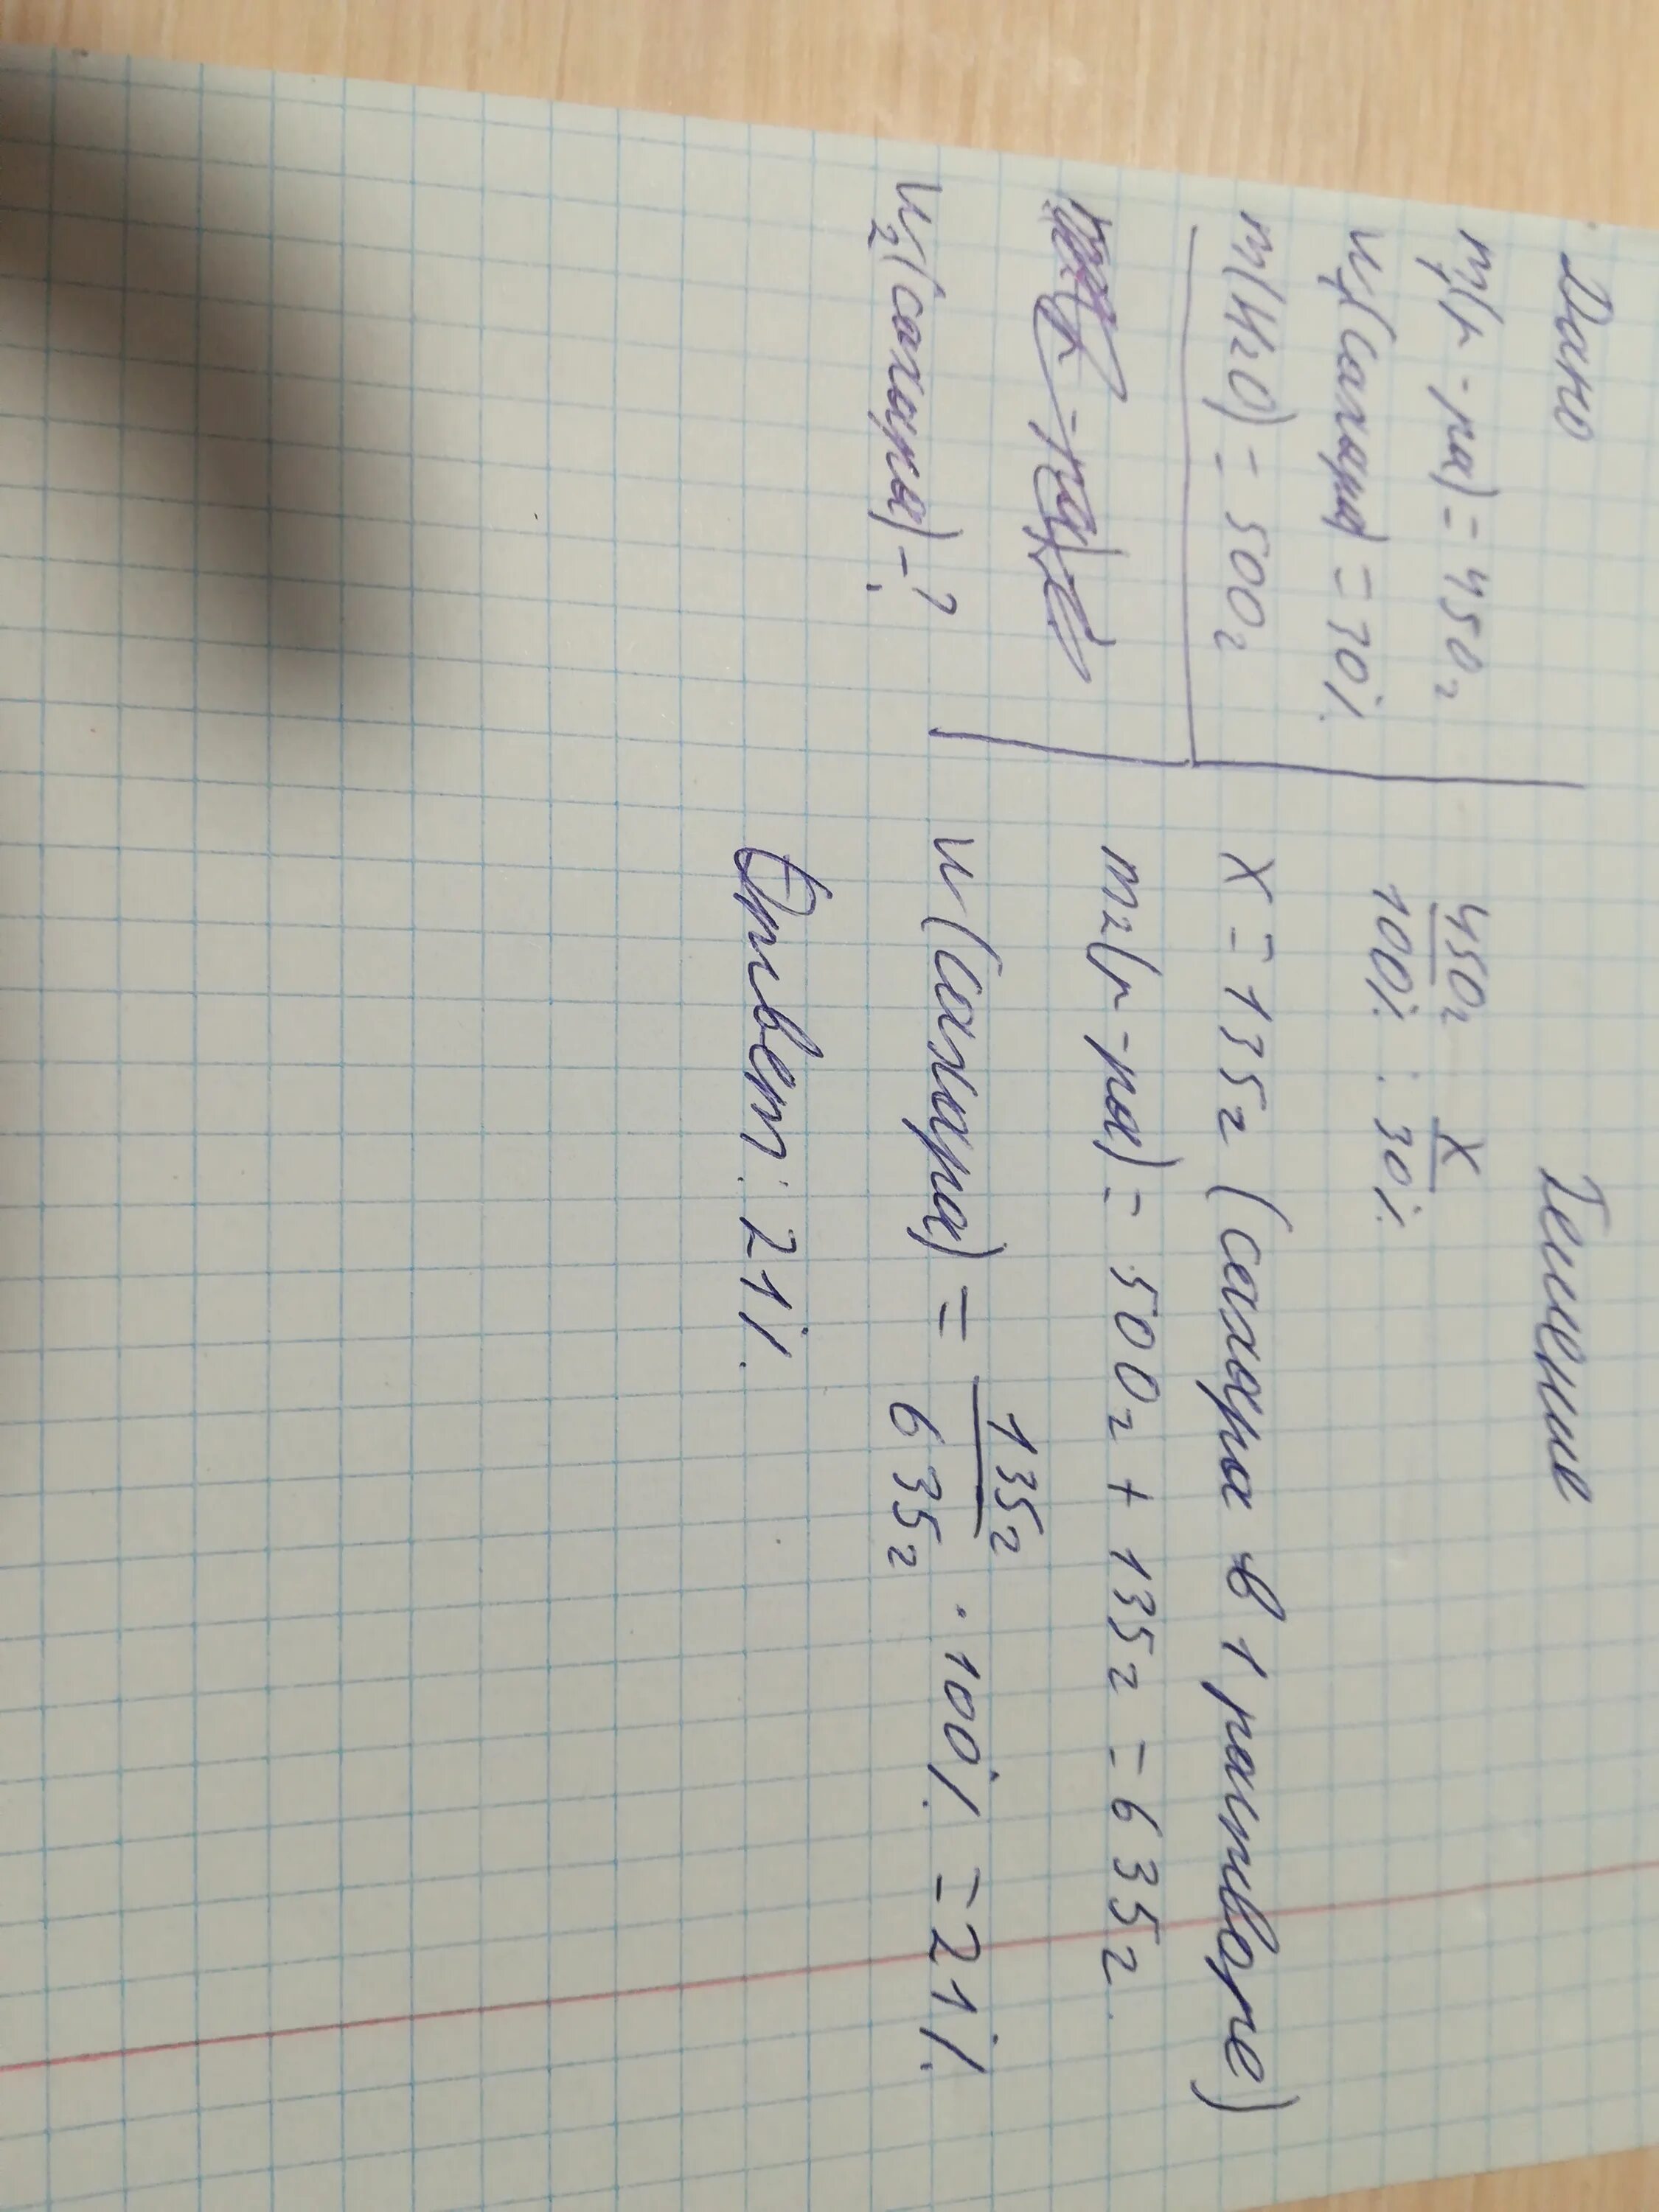 Дано
m₁(р-ра) = 450г
w₁(сахара) = 30%
m(H₂O) = 500г
w₂(сахара) - ?
Решение
450г X
100% : 30%
X = 135г (сахара в 1 растворе)
m₂(р-ра) = 500г + 135г = 635г.
w(сахара) = 135г / 635г · 100% = 21%
Ответ: 21%.